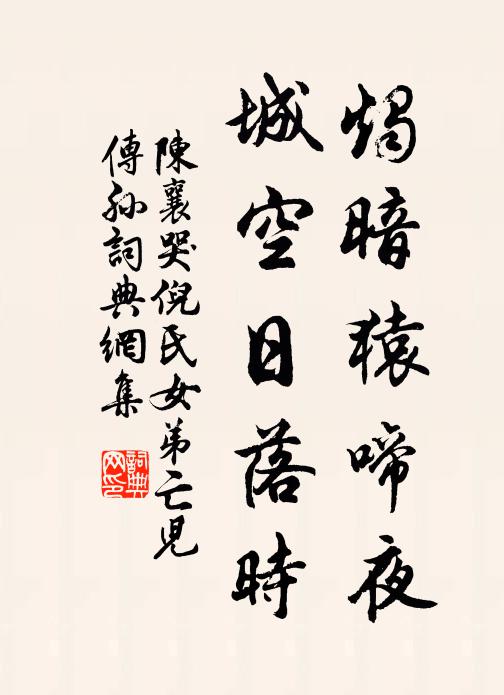 燭暗猿啼夜
城空日落時
陳襄哭倪氏女弟亡児
傳孙詞典網集
詞典
网印